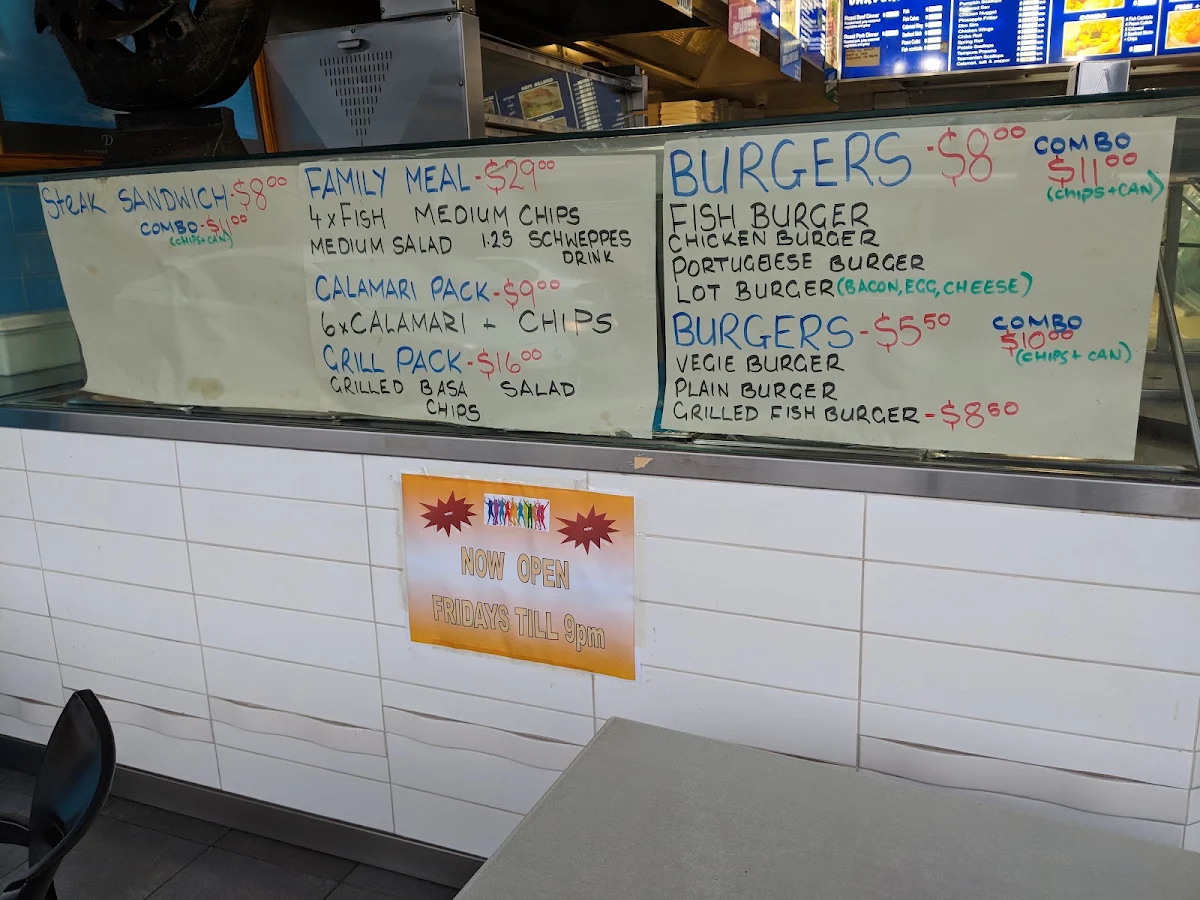 Steak SANDWICH-$8⁰⁰
COMBO-$11⁰⁰
(CHIPS+CAN)
FAMILY MEAL-$29⁰⁰
4xFISH MEDIUM CHIPS
MEDIUM SALAD 1.25 SCHWEPPES
DRINK
CALAMARI PACK-$9⁰⁰
6xCALAMARI + CHIPS
GRILL PACK-$16⁰⁰
GRILLED BASA SALAD
CHIPS
BURGERS-$8⁰⁰ COMBO
$11⁰⁰
(CHIPS+CAN)
FISH BURGER
CHICKEN BURGER
PORTUGEESE BURGER
LOT BURGER(BACON,EGG,CHEESE)
BURGERS-$5⁵⁰ COMBO
$10⁰⁰
(CHIPS+CAN)
VEGIE BURGER
PLAIN BURGER
GRILLED FISH BURGER-$8⁵⁰
NOW OPEN
FRIDAYS TILL 9pm